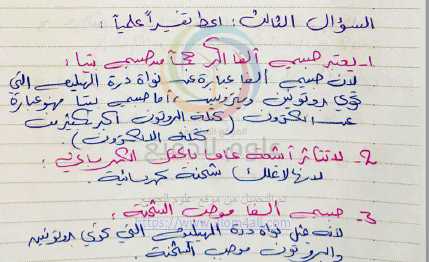 السؤال الثالث: اعط تفسيراً علمياً:
1- يعتبر جسيم ألفا أكبر حجماً من جسيم بيتا:
لأن جسيم ألفا عبارة عن نواة ذرة الهيليوم التي
تحوي بروتونين ونيوترونين، أما جسيم بيتا فهو عبارة
عن الكترون (كتلة البروتون أكبر بكثير من
كتلة الالكترون).
2- لا تتأثر أشعة غاما بالحقل الكهربائي:
لأنها لا تملك شحنة كهربائية.
3- جسيم ألفا موجب الشحنة:
لأنه يمثل نواة ذرة الهيليوم التي تحوي بروتونين
والبروتون موجب الشحنة.